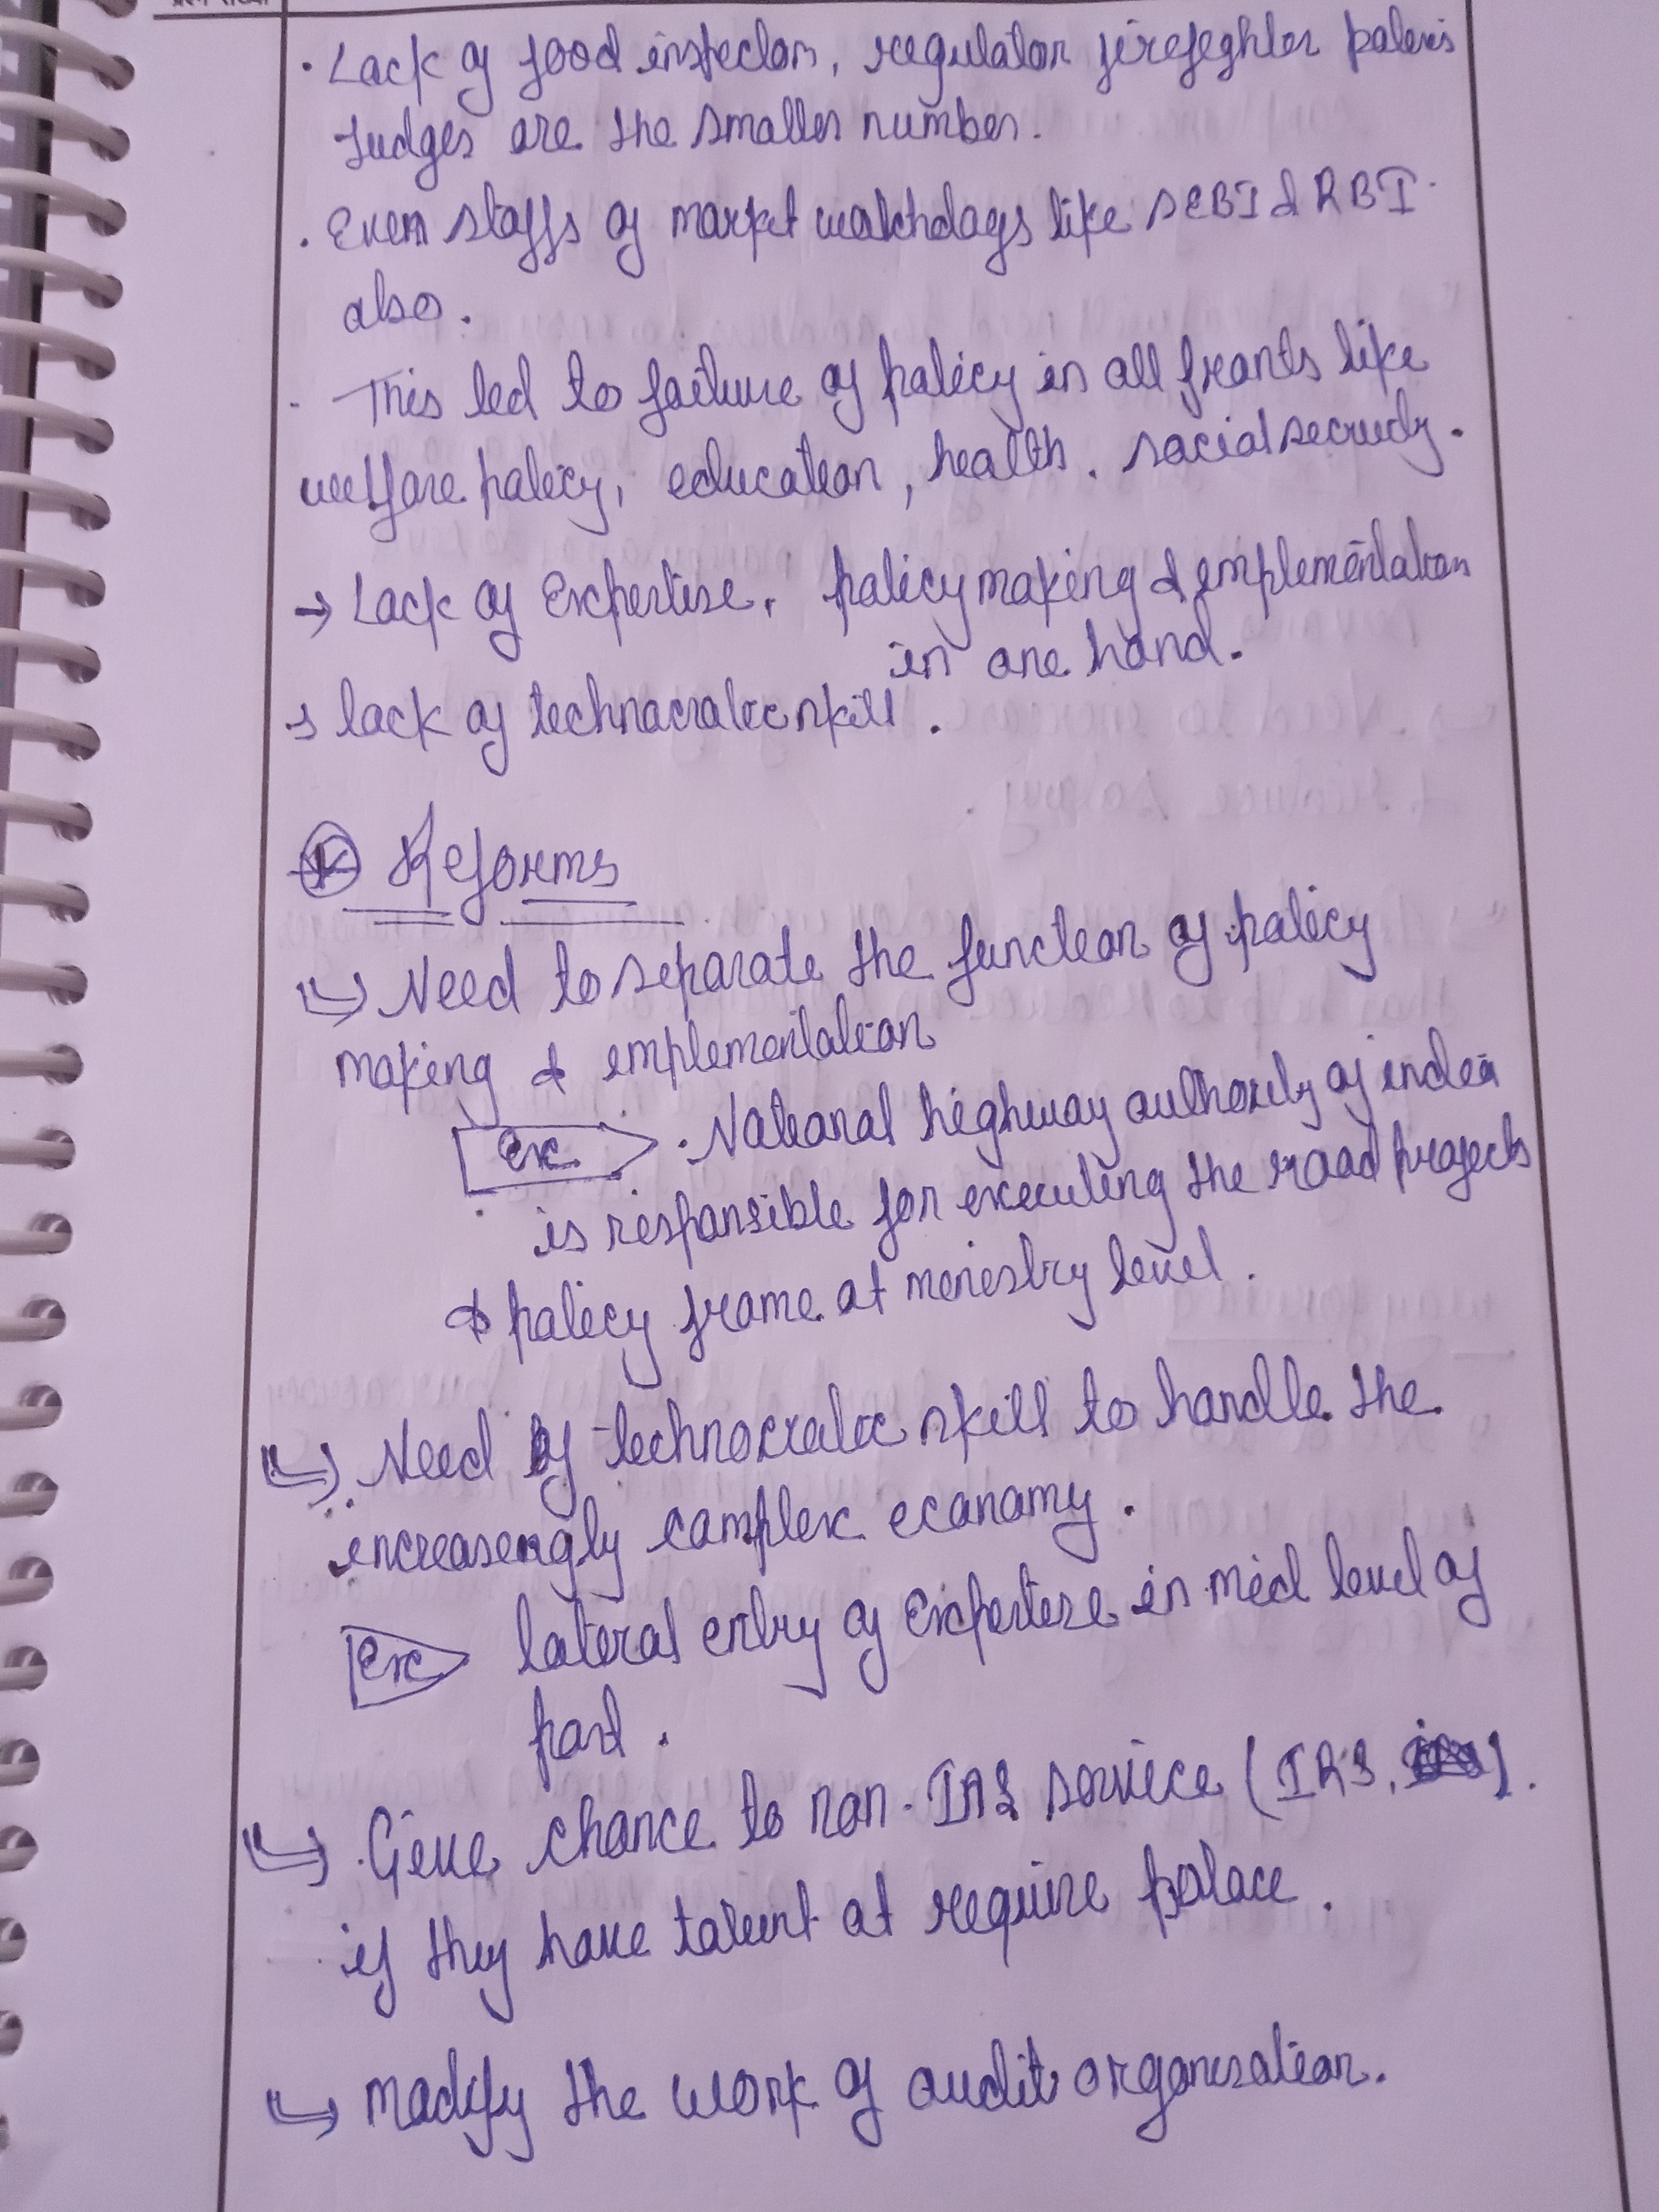 • Lack of food inspectors, regulator firefighter
Judges are the smaller number.
• Even staffs of market watchdogs like SEBI & RBI
also.
• This led to failure of policy in all fronts like
welfare policy, education, health, social security.
→ Lack of Expertise, policy making & implementation
in one hand.
→ lack of technocratic skill.
⊛ Reforms
↳ Need to separate the function of policy
making & implementation
Ex. • National highway authority of india
is responsible for executing the road projects
& policy frame at ministry level.
↳ Need of technocratic skill to handle the
increasingly complex economy.
Ex lateral entry of Expertise in mid level of
post.
↳ Give chance to non-IAS service (IRS, ).
if they have talent at require palace.
↳ modify the work of audit organisation.